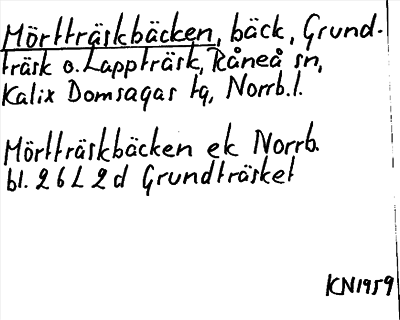 Mörtträskbäcken, bäck, Grund-
träsk o. Lappträsk, Råneå sn,
Kalix Domsagas tg, Norrb. l.
Mörtträskbäcken ek Norrb.
bl. 26 L 2 d Grundträsket
KN1959